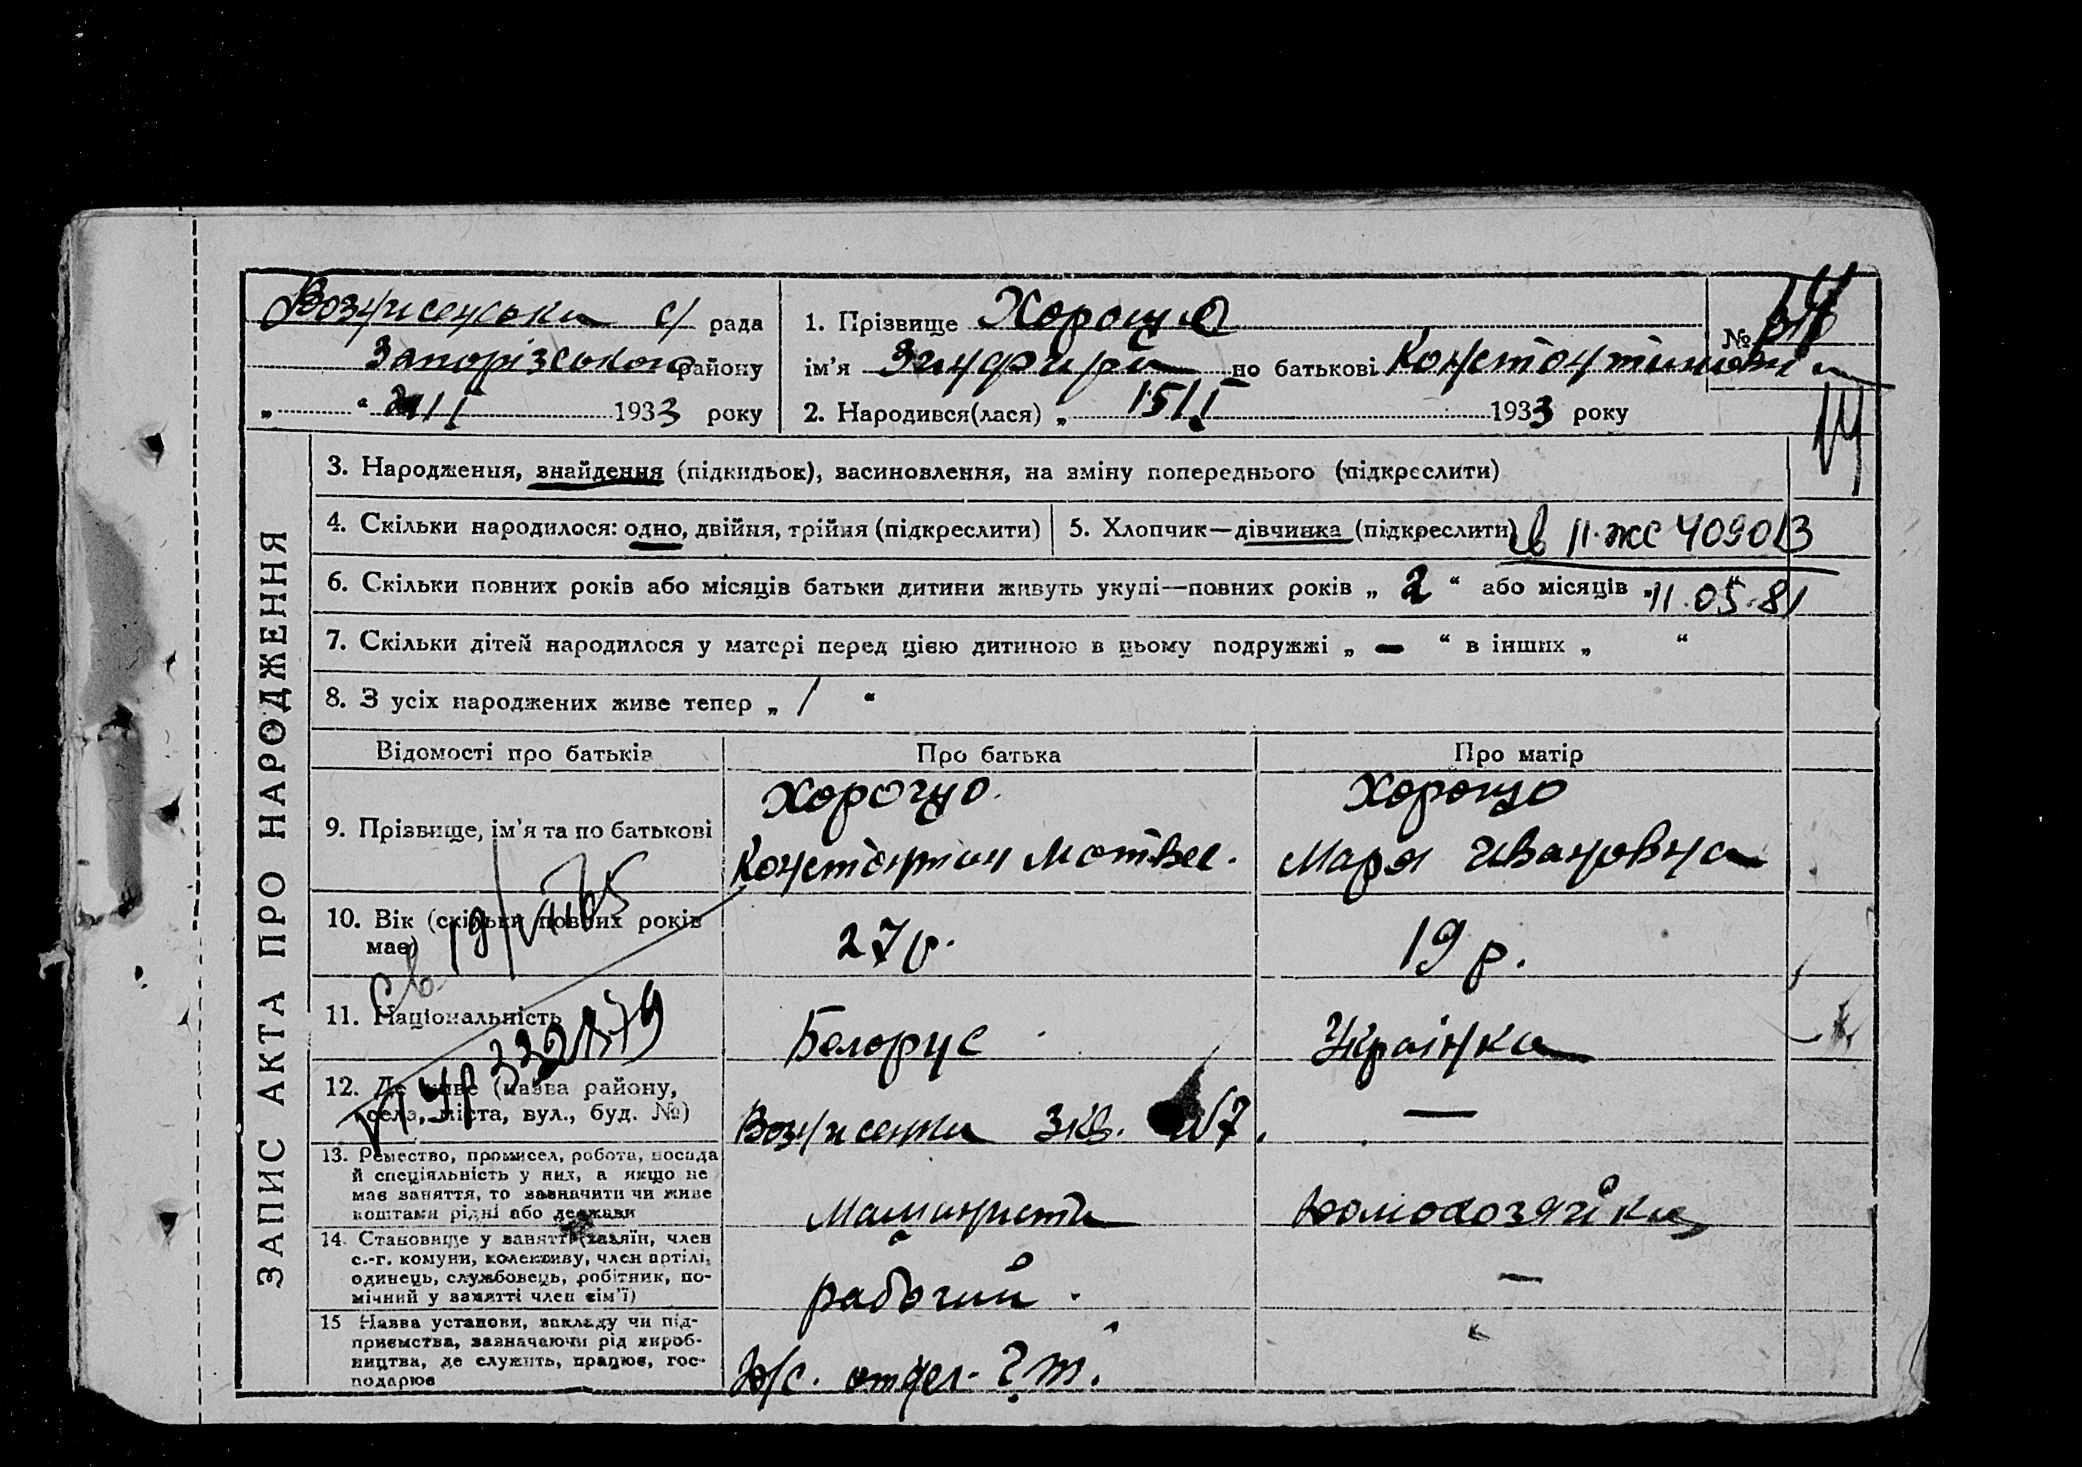 Вознисенська с/ рада
Запорізського району
„ “ 2/II 1933 року
1. Прізвище Хорощо
№
ім'я Зинфира по батькові Константиновна
2. Народився(лася) „ 15/I 1933 року
ЗАПИС АКТА ПРО НАРОДЖЕННЯ
3. Народження, знайдення (підкидьок), засиновлення, на зміну попереднього (підкреслити)
4. Скільки народилося: одно, двійня, трійня (підкреслити)
5. Хлопчик—дівчинка (підкреслити)
II-жс 409013
6. Скільки повних років або місяців батьки дитини живуть укупі—повних років „ 2 “ або місяців „
11.05.81
7. Скільки дітей народилося у матері перед цією дитиною в цьому подружжі „ — “ в інших „ “
8. З усіх народжених живе тепер „ / “
Відомості про батьків
Про батька
Про матір
9. Прізвище, ім'я та по батькові
Хорощо
Константин Матвее.
Хорощо
Маря Ивановна
10. Вік (скільки повних років має)
27 р.
19 р.
11. Національність
Белорус
Українка
12. Де живе (назва району,
село, міста, вул., буд. №)
Вознисенка 3кв. №7.
—
13. Ремество, промисел, робота, посада
й спеціяльність у них, а якщо не
має заняття, то зазначити чи живе
коштами рідні або держави
Машиниста
домохозяйка
14. Становище у занятті (хазяїн, член
с.-г. комуни, колективу, член артілі,
одинець, службовець, робітник, по-
мічний у занятті член сім'ї)
рабочий
—
15 Назва установи, закладу чи під-
приємства, зазначаючи рід вироб-
ництва, де служить, працює, гос-
подарює
отдел